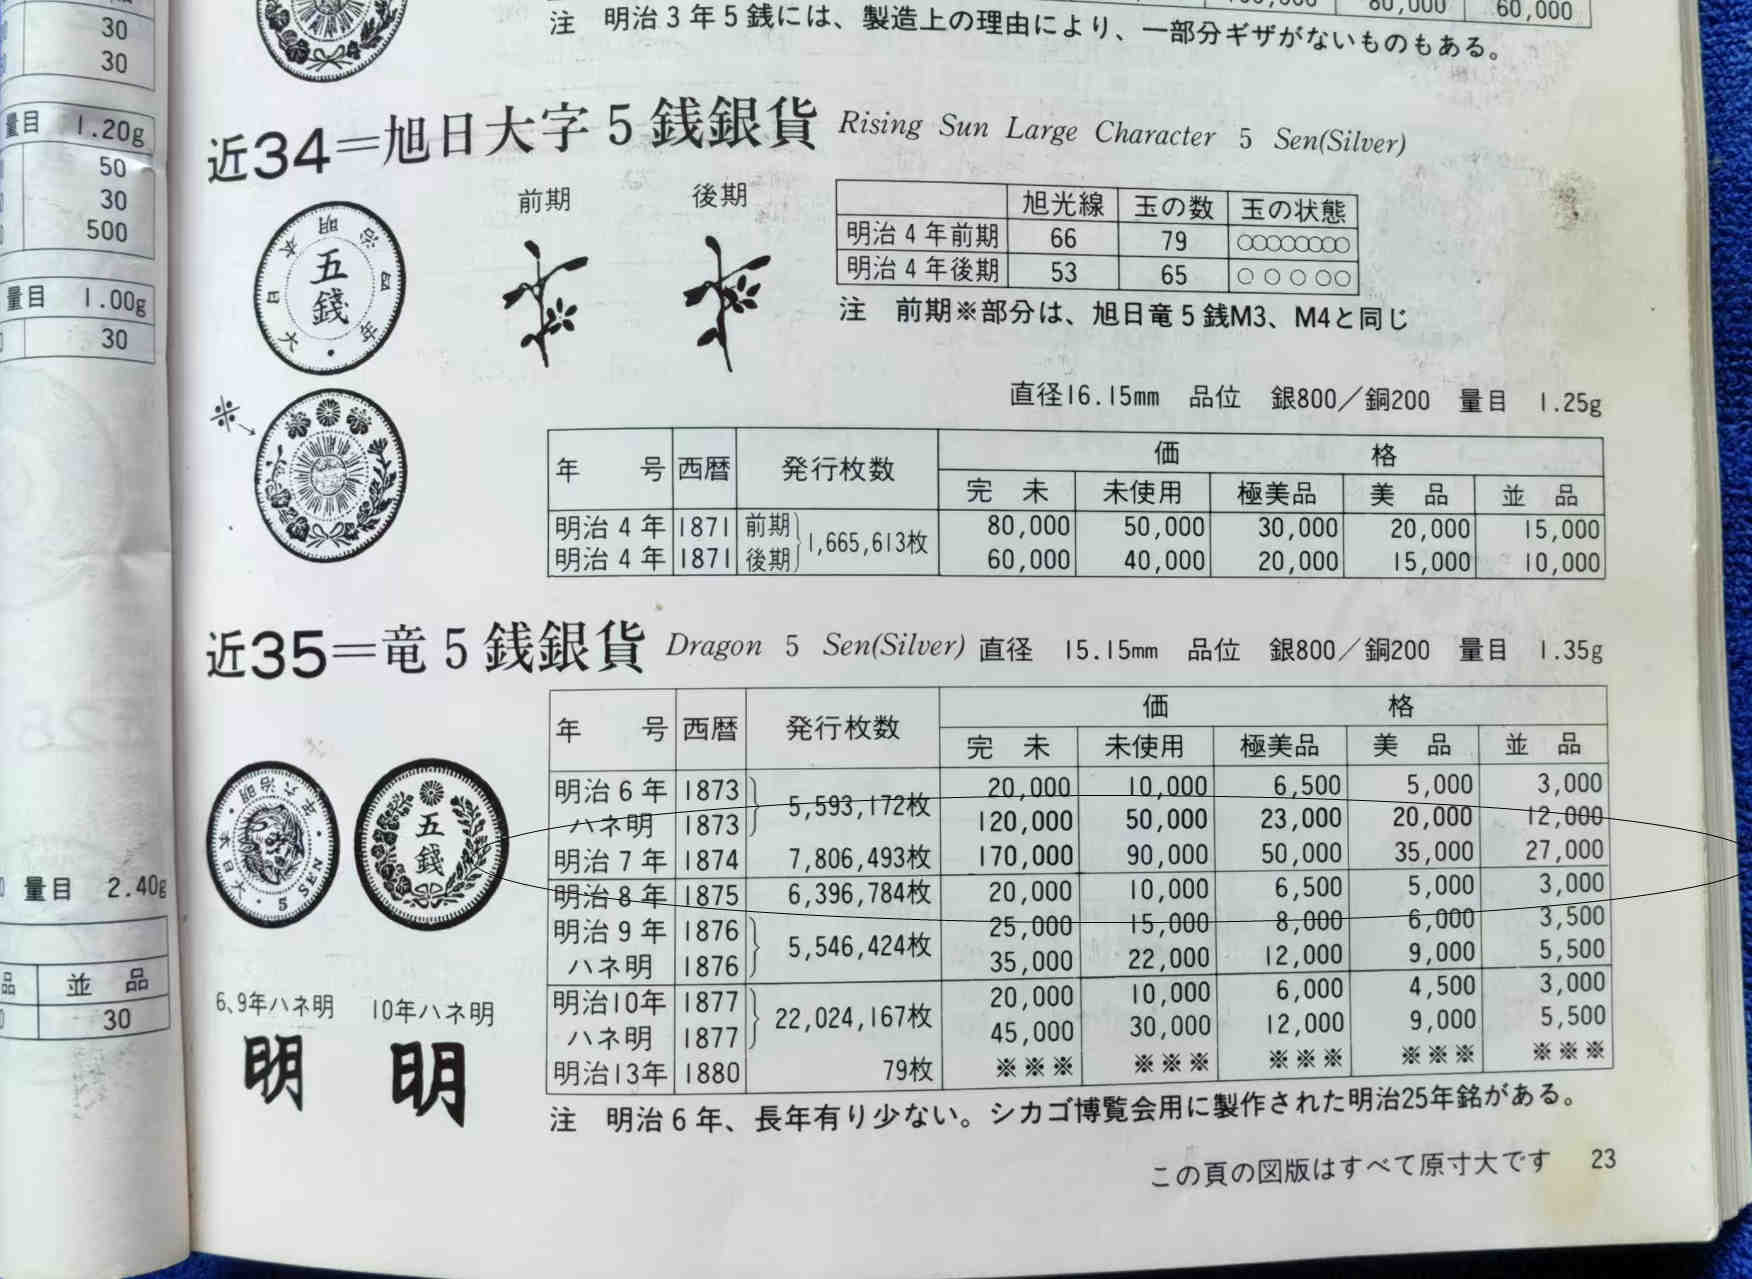 30
30
量目 1.20g
50
30
500
量目 1.00g
30
量目 2.40g
品 並 品
30
80,000 60,000
注 明治3年5銭には、製造上の理由により、一部分ギザがないものもある。
近34=旭日大字5銭銀貨 Rising Sun Large Character 5 Sen(Silver)
前期 後期
旭光線 玉の数 玉の状態
明治4年前期 66 79 ○○○○○○○○
明治4年後期 53 65 ○○○○○
注 前期※部分は、旭日竜5銭M3、M4と同じ
大日本明治四年
五銭
※
直径16.15mm 品位 銀800/銅200 量目 1.25g
年 号 西暦 発行枚数 価 格
完 未 未使用 極美品 美 品 並 品
明治4年 1871 前期 1,665,613枚 80,000 50,000 30,000 20,000 15,000
明治4年 1871 後期 60,000 40,000 20,000 15,000 10,000
近35=竜5銭銀貨 Dragon 5 Sen(Silver) 直径 15.15mm 品位 銀800/銅200 量目 1.35g
大日本・明治六年・5 SEN・
五
銭
年 号 西暦 発行枚数 価 格
完 未 未使用 極美品 美 品 並 品
明治6年 1873 5,593,172枚 20,000 10,000 6,500 5,000 3,000
ハネ明 1873 120,000 50,000 23,000 20,000 12,000
明治7年 1874 7,806,493枚 170,000 90,000 50,000 35,000 27,000
明治8年 1875 6,396,784枚 20,000 10,000 6,500 5,000 3,000
明治9年 1876 5,546,424枚 25,000 15,000 8,000 6,000 3,500
ハネ明 1876 35,000 22,000 12,000 9,000 5,500
明治10年 1877 22,024,167枚 20,000 10,000 6,000 4,500 3,000
ハネ明 1877 45,000 30,000 12,000 9,000 5,500
明治13年 1880 79枚 ※※※ ※※※ ※※※ ※※※ ※※※
6、9年ハネ明 10年ハネ明
明 明
注 明治6年、長年有り少ない。シカゴ博覧会用に製作された明治25年銘がある。
この頁の図版はすべて原寸大です 23